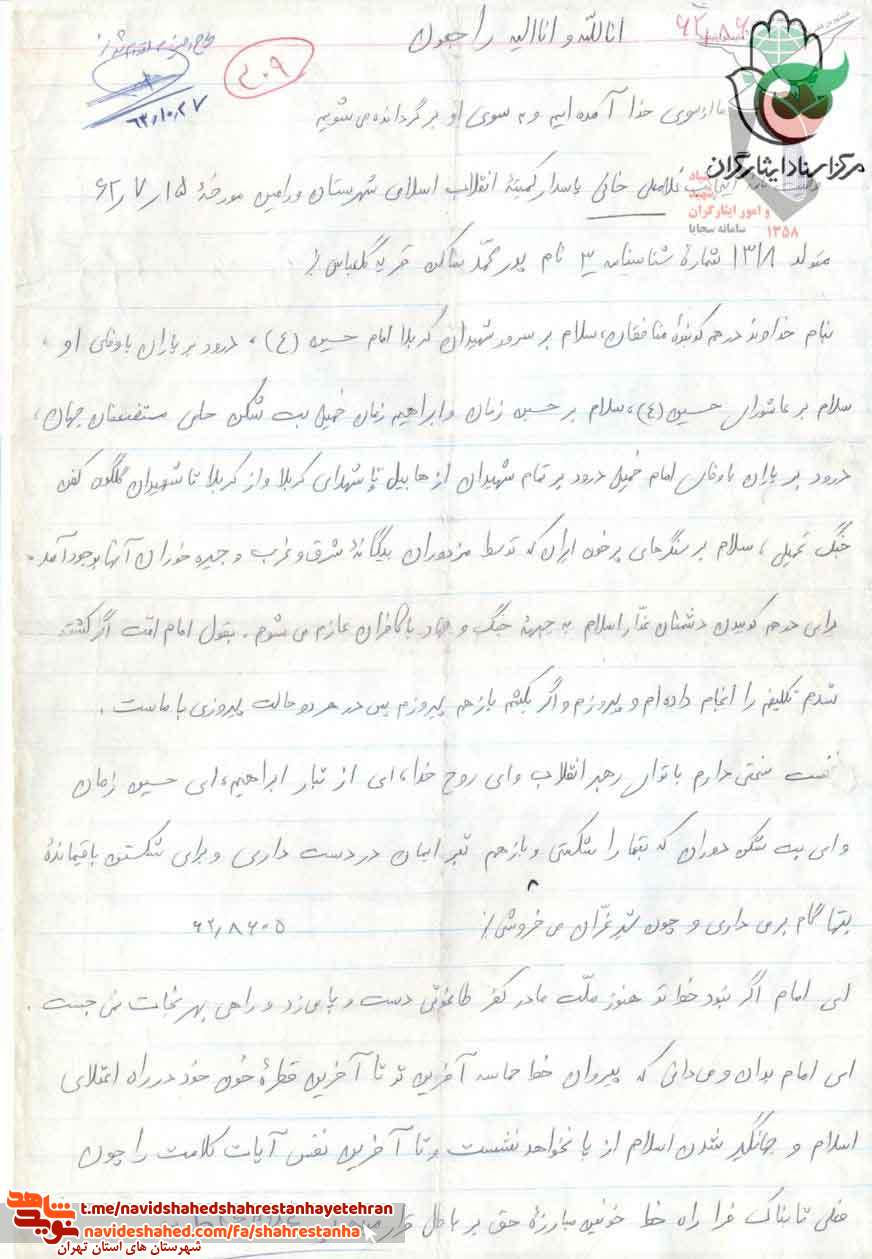 انا لله و انا الیه راجعون
۳۰۹
۶۲٫۱۰٫۲۷
ما از سوی خدا آمده ایم و به سوی او برگردانده می شویم
مرکز اسناد ایثارگران
و امور ایثارگران
سامانه سجایا ۱۳۵۸
غلامعلی خانی پاسدار کمیتهٔ انقلاب اسلامی شهرستان ورامین مورخهٔ ۶۲٫۷٫۱۵
متولد ۱۳۱۸ شمارهٔ شناسنامه ۳ نام پدر محمّد ساکن قریه گلعباس /.
بنام خداوند درهم کوبندهٔ منافقان، سلام بر سرور شهیدان کربلا امام حسین (ع)، درود بر یاران باوفای او،
سلام بر عاشورای حسین (ع)، سلام بر حسین زمان و ابراهیم زمان خمینی بت شکن حامی مستضعفان جهان،
درود بر یاران باوفای امام خمینی درود بر تمام شهیدان از هابیل تا شهدای کربلا و از کربلا تا شهیدان گلگون کفن
جنگ تحمیلی، سلام بر سنگرهای پرخون ایران که توسط مزدوران بیگانهٔ شرق و غرب و جیره خوران آنها بوجود آمد.
برای درهم کوبیدن دشمنان غدّار اسلام به جبههٔ جنگ و جهاد با کافران عازم می شوم. بقول امام امّت اگر کشته
شدم تکلیفم را انجام داده ام و پیروزم و اگر بکشم باز هم پیروزم پس در هر دو حالت پیروزی با ماست.
سخنی دارم با توای رهبر انقلاب وای روح خدا، ای از تبار ابراهیم، ای حسین زمان
وای بت شکن دوران که بتها را شکستی و باز هم تبر ایمان در دست داری و برای شکستن باقیماندهٔ
بتها گام برمی داری و چون شیر غرّان می خروشی /.
۶۲٫۸۶۰۵
ای امام اگر نبود خط تو هنوز ملّت ما در کفر طاغوتی دست و پا می زد و راهی بهر نجات می جست.
ای امام بدان و می دانی که پیروان خط حماسه آفرین تو تا آخرین قطرهٔ خون خود در راه اعتلای
اسلام و جهانگیر شدن اسلام از پا نخواهد نشست و تا آخرین نفس آیات کلامت را چون
تابناک فرا راه خط خونین مبارزهٔ حق بر باطل قرار
شاهد
نوید
t.me/navidshahedshahrestanhayetehran
navideshahed.com/fa/shahrestanha
شهرستان های استان تهران